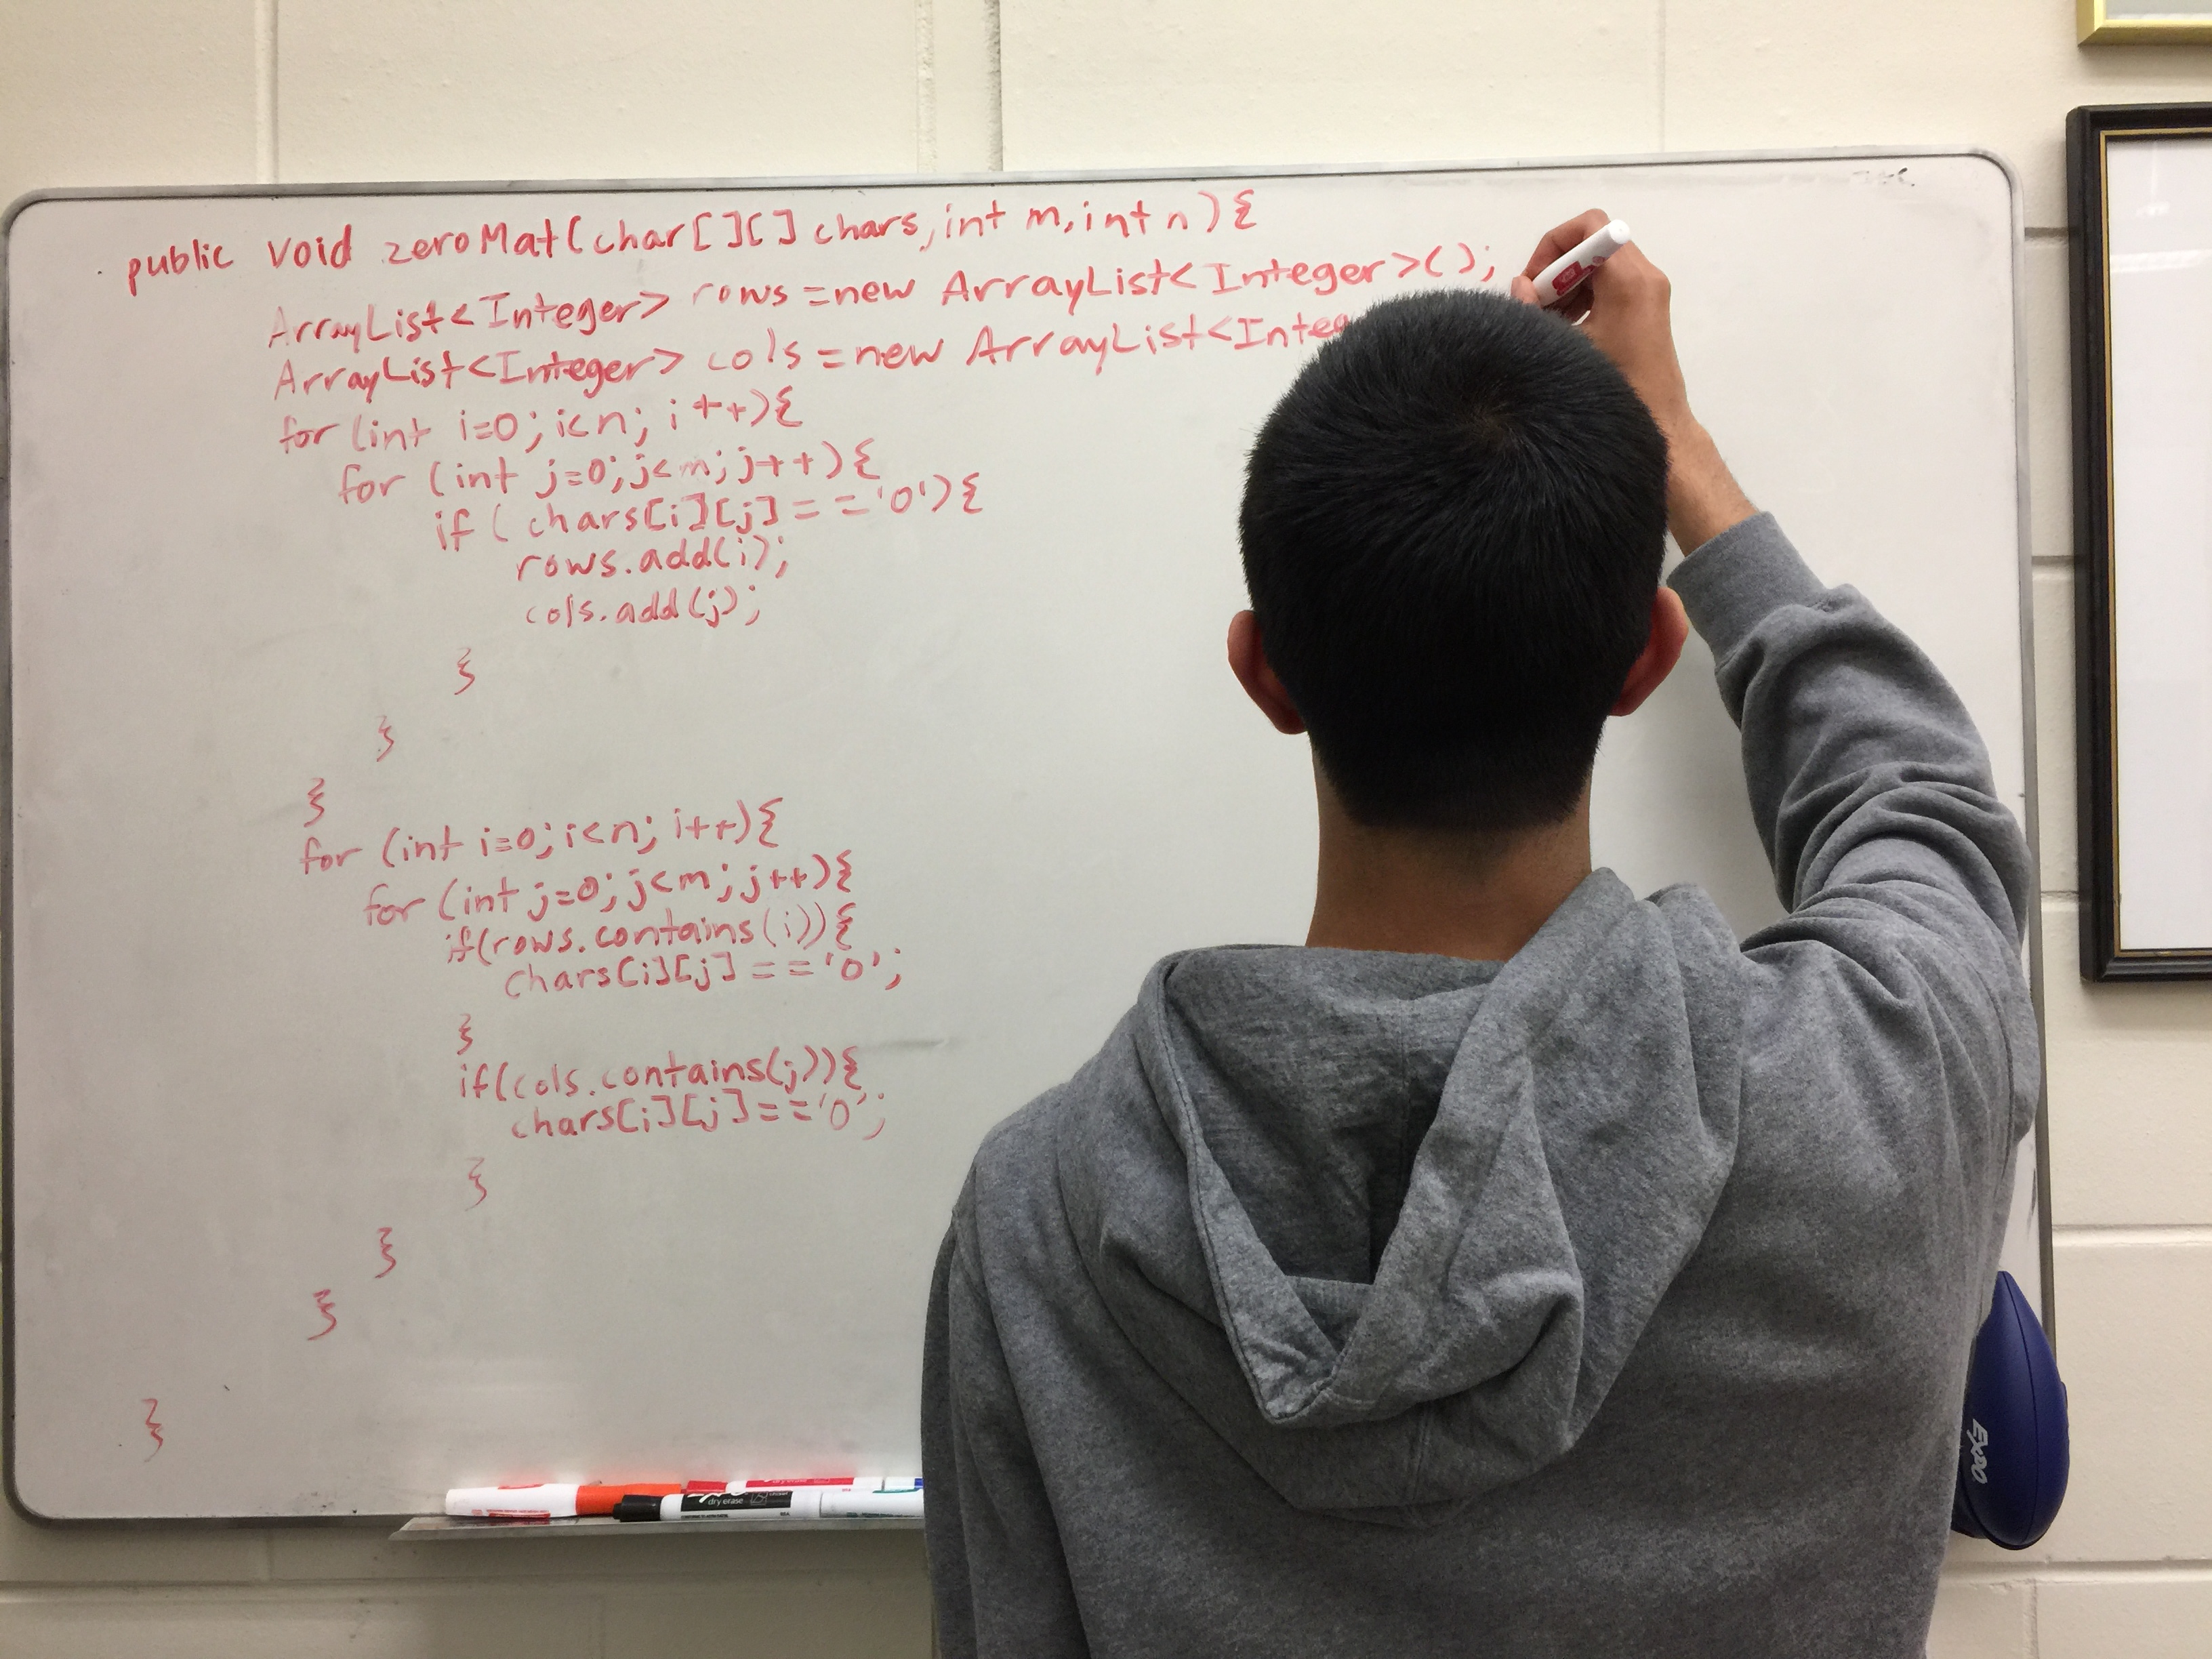 public void zeroMat(char[][] chars, int m, int n){
ArrayList<Integer> rows = new ArrayList<Integer>();
ArrayList<Integer> cols = new ArrayList<
for (int i=0; i<n; i++){
for (int j=0; j<m; j++){
if ( chars[i][j] == '0'){
rows.add(i);
cols.add(j);
}
}
}
for (int i=0; i<n; i++){
for (int j=0; j<m; j++){
if(rows.contains(i)){
chars[i][j] == '0';
}
if(cols.contains(j)){
chars[i][j] == '0';
}
}
}
}
dry erase
EXPO